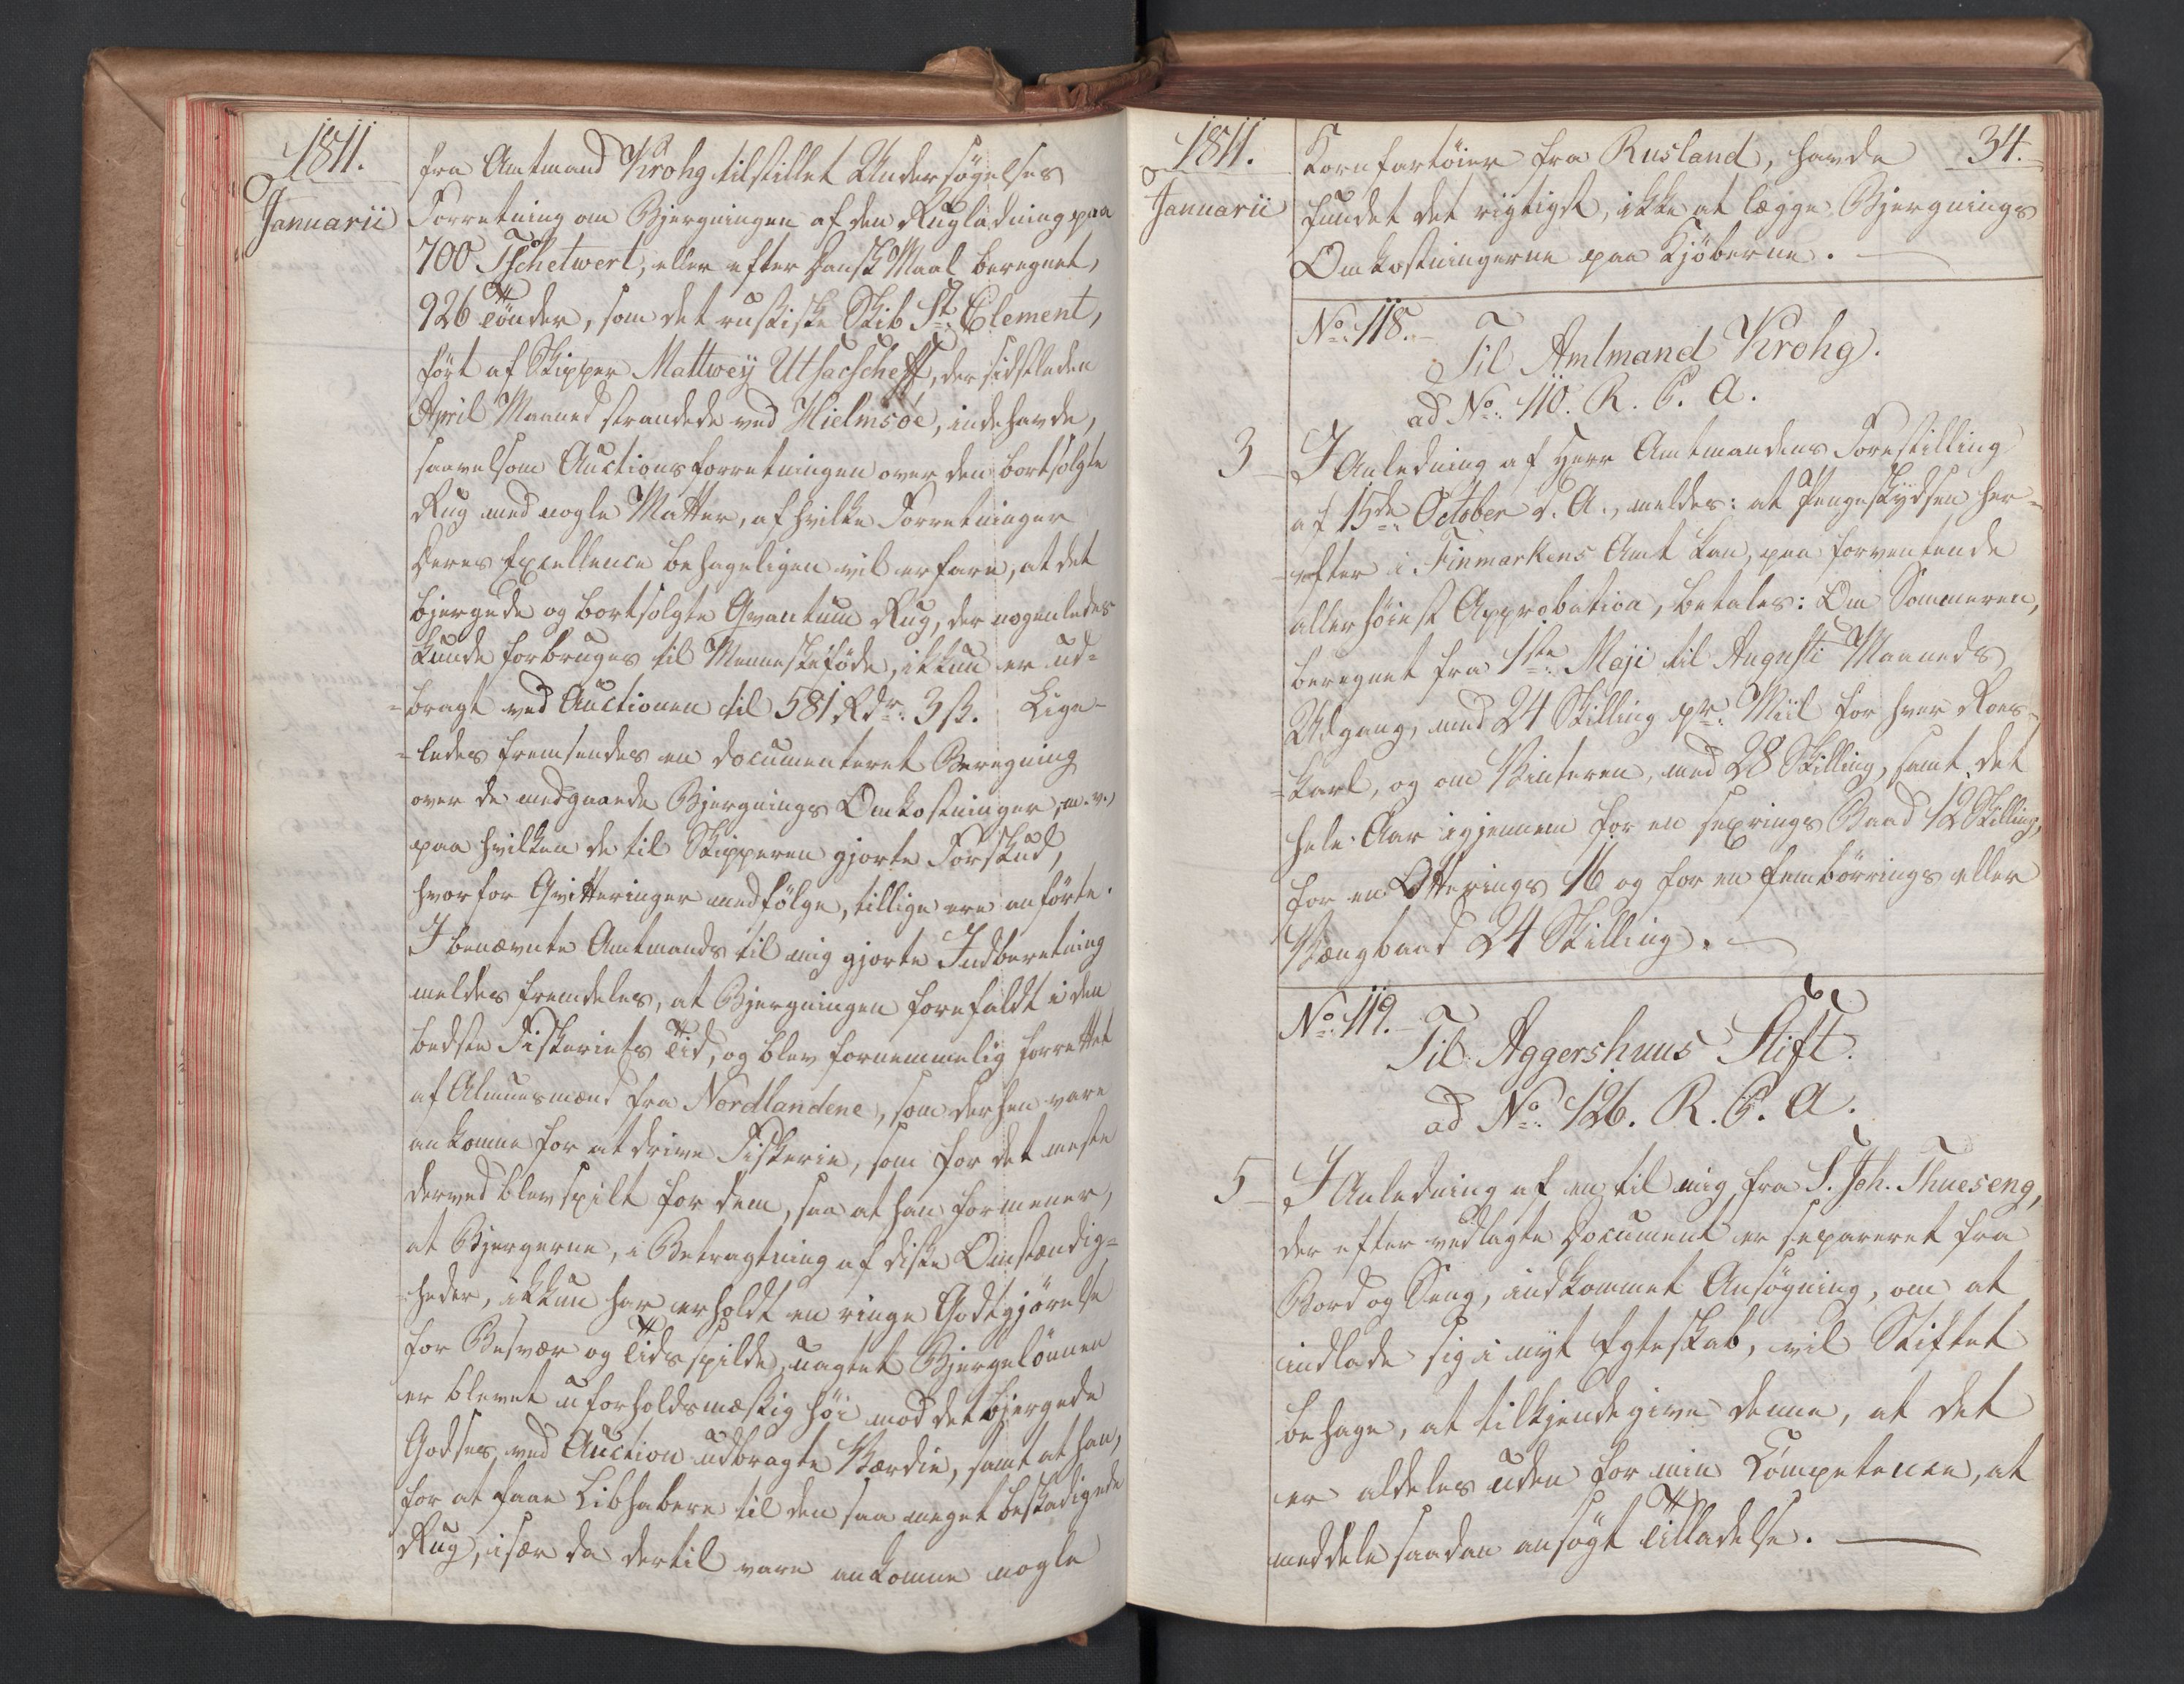 1811.
Januarii
fra Amtmand Krohg tilstillet Undersøgelses
Forretning om Bjergningen af den Rugladning paa
700 Tschetwert, eller efter Dansk Maal beregnet,
926 Tönder, som det russiske Skib St. Clement,
ført af Skipper Mattwey Utsacscheff, der sidstleden
April Maaned strandede ved Hielmsöe, indehavde,
saavelsom Auctionsforretningen over den bortsolgte
Rug med nogle Matter, af hvilke Forretninger
Deres Excellence behageligen vil erfare, at det
bjergede og bortsolgte Qvantum Rug, der nogenledes
kunde forbruges til Menneskeföde, ikkun er ud-
-bragt ved Auctionen til 581 Rdr. 3 ß. Lige-
-ledes fremsendes en documenteret Beregning
over de medgaaede Bjergnings Omkostninger, m. v.,
paa hvilken de til Skipperen gjorte Forskud,
hvorfor Qvitteringer medfölge, tillige ere anförte.
I benævnte Amtmands til mig gjorte Indberetning
meldes fremdeles, at Bjergningen forefaldt i den
bedste Fiskeriets Tid, og blev fornemmelig forrettet
af Almuesmænd fra Nordlandene, som derhen vare
ankomne for at drive Fiskerie, som for det meste
derved blev spilt for dem, saa at han formener,
at Bjergerne, i Betragtning af disse Omstændig=
=heder, ikkun har erholdt en ringe Godtgjörelse
for Besvær og Tidsspilde, uagtet Bjergelönnen
er blevet uforholdsmæssig höi mod det bjergede
Godses ved Auction udbragte Værdie, samt at han,
for at faae Libhabere til den saa meget beskadigede
Rug, især da dertil vare ankomne nogle
1811.
34.
Januarii
Kornfartöier fra Rusland, havde
fundet det rigtigst, ikke at lægge Bjergnings
Omkostningerne paa Kjöberne.
No. 118.
Til Amtmand Krohg.
ad No. 110. R. C. A.
3
I Anledning af Herr Amtmandens Forestilling
af 15de October d. A., meldes: at Pengeskydsen her-
-efter i Finmarkens Amt kan, paa forventende
allerhöiest Approbation, betales: Om Sommeren,
beregnet fra 1ste Maji til Augusti Maaneds
Udgang, med 24 Skilling pr. Miil for hver Roes-
-karl, og om Vinteren, med 28 Skilling, samt det
hele Aar igjennem for en sexrings Baad 12 Skilling,
for en Otterings 16 og for en fembörrings eller
Vængbaad 24 Skilling.
No. 119.
Til Aggershuus Stift.
ad No. 126. R. C. A.
5
I Anledning af en til mig fra S. Joh. Thueseng,
der efter vedlagte Document er separeret fra
Bord og Seng, indkommet Ansögning, om at
indlade sig i nyt Egteskab, vil Stiftet
behage, at tilkjendegive denne, at det
er aldeles uden for min Competence, at
meddele saadan ansögt Tilladelse.